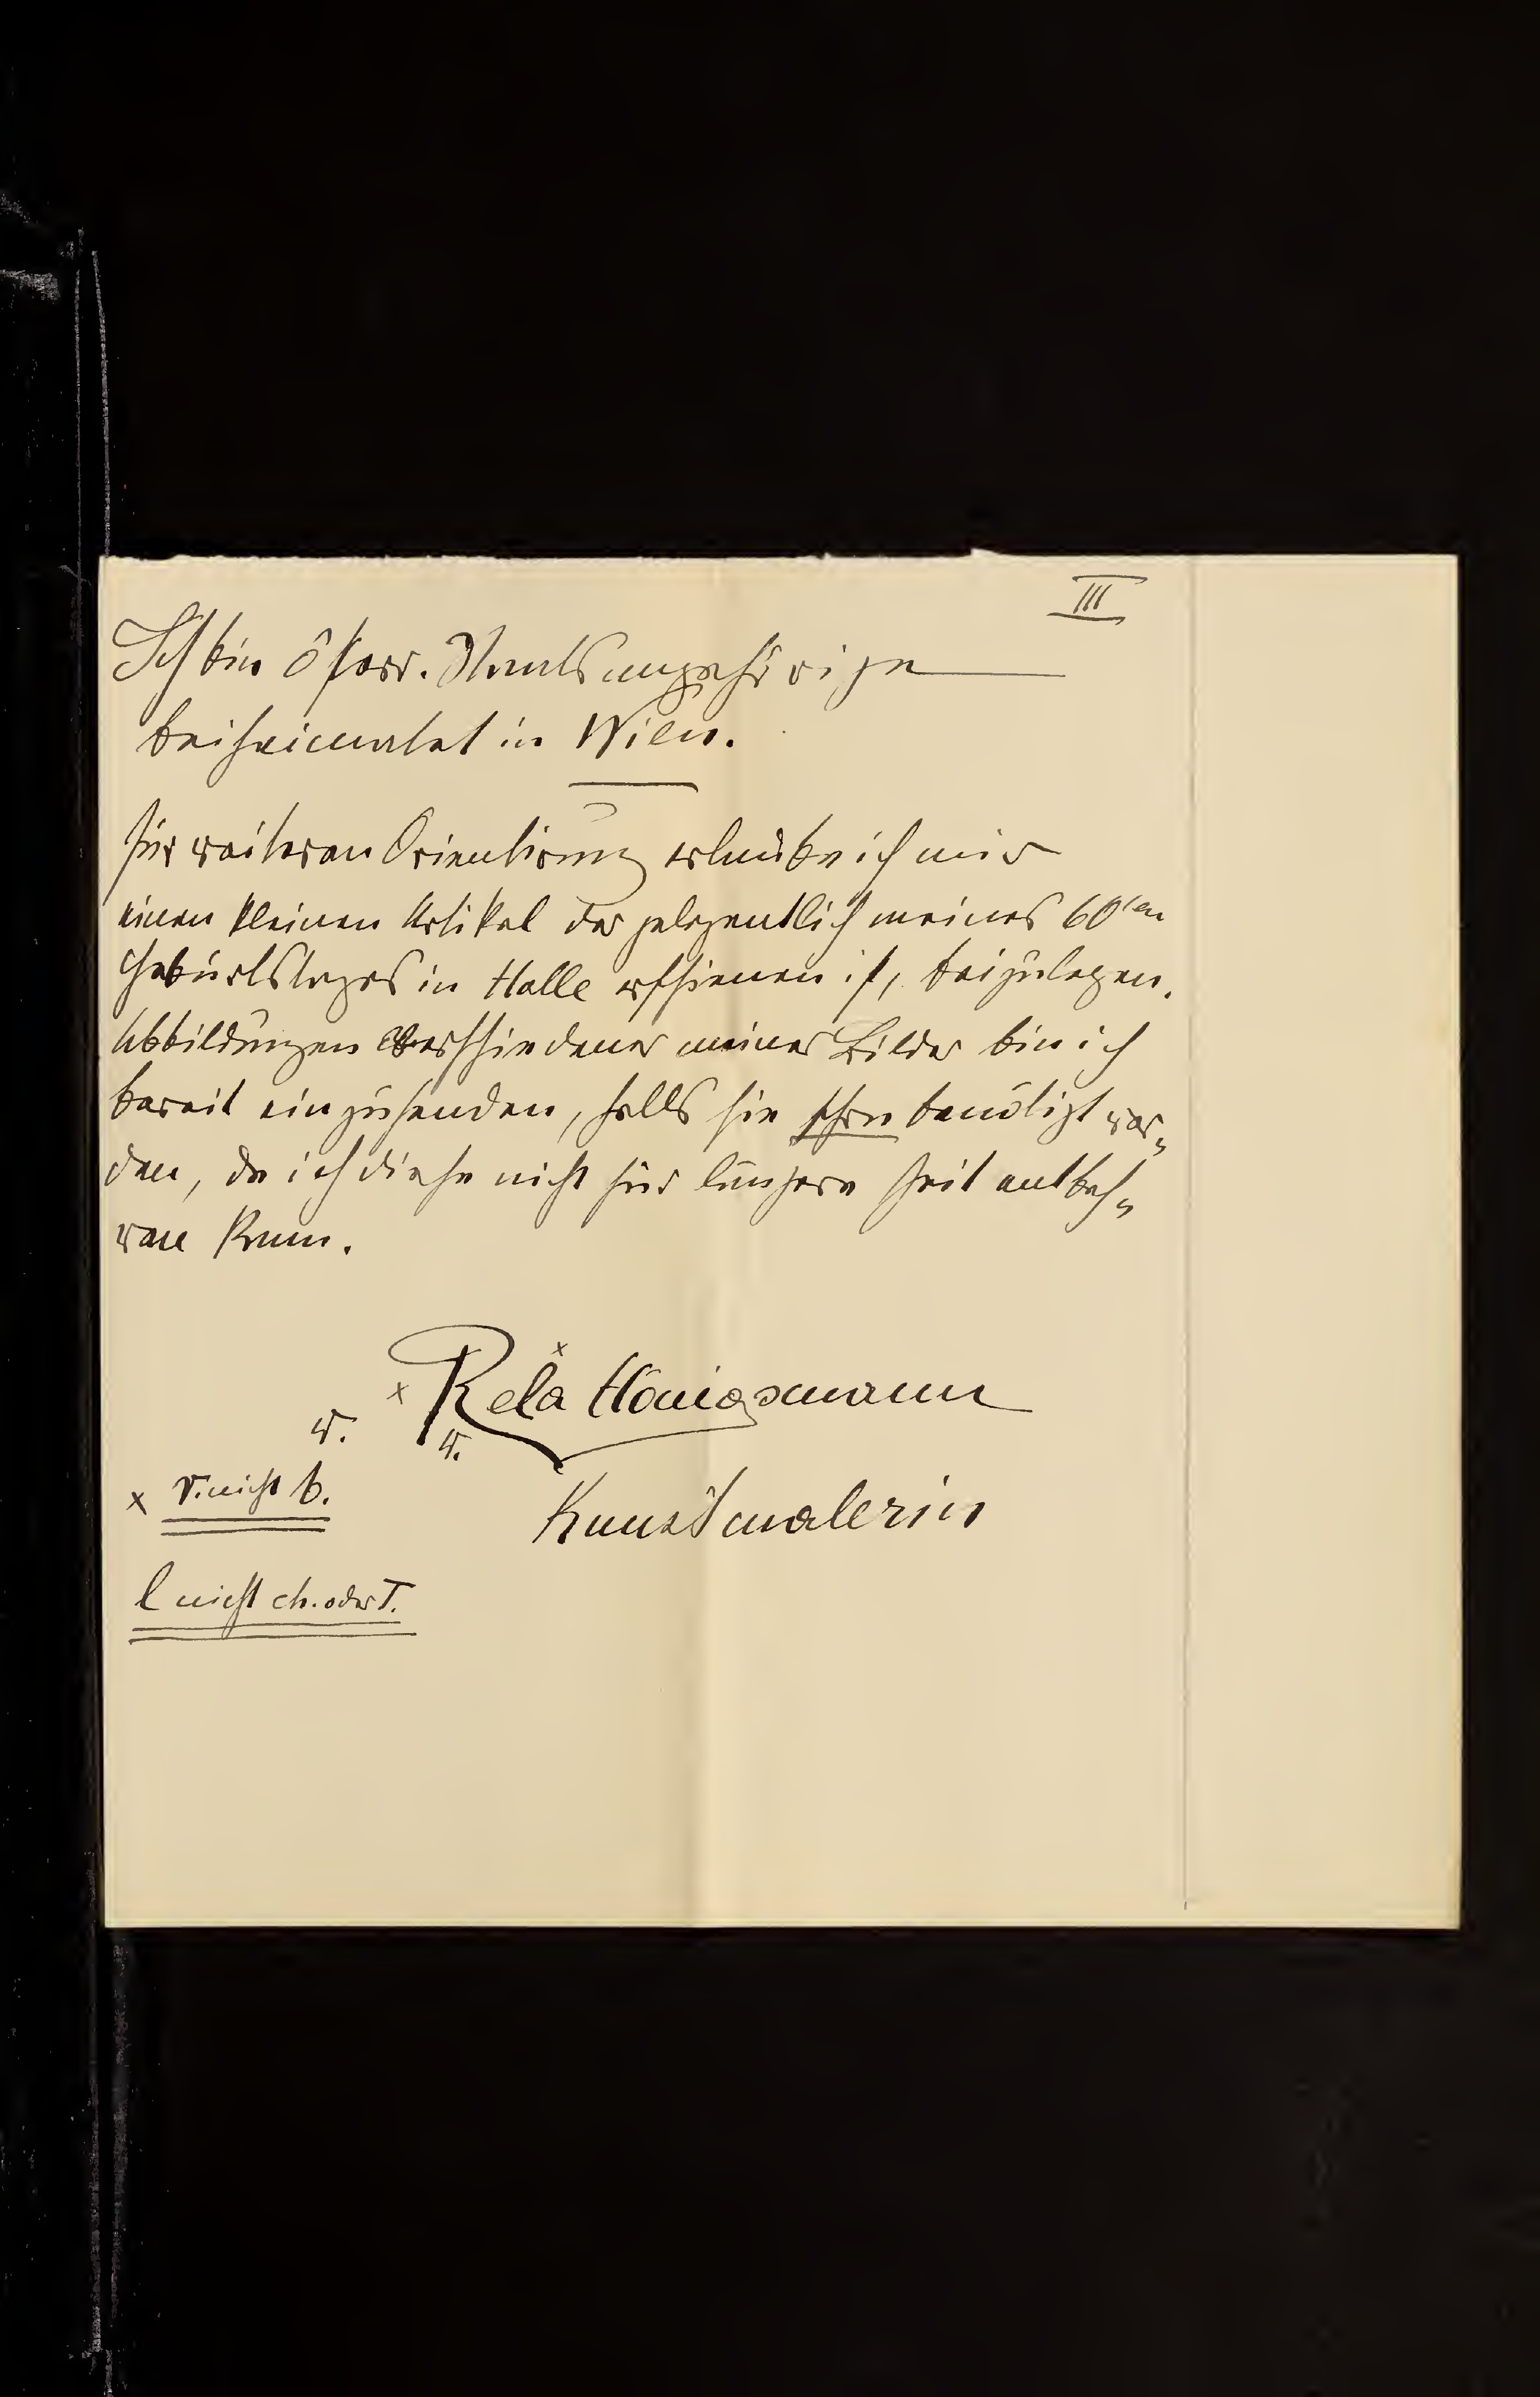 III
Ich bin österr. Staatsangehörige
beheimatet in Wien.
Zur weiteren Orientirung erlaube ich mir
einen kleinen Artikel der gelegentlich meines 60ten
Geburtstages in Halle erschienen ist, beizulegen.
Abbildungen verschiedener meiner Bilder bin ich
bereit einzusenden, falls sie benötigt wer-
den, da ich diese nicht für längere Zeit entbeh-
ren kann.
x Rela Hönigsmann
r. r.
Kunstmalerin
x r. nicht b.
l nicht ch. oder T.